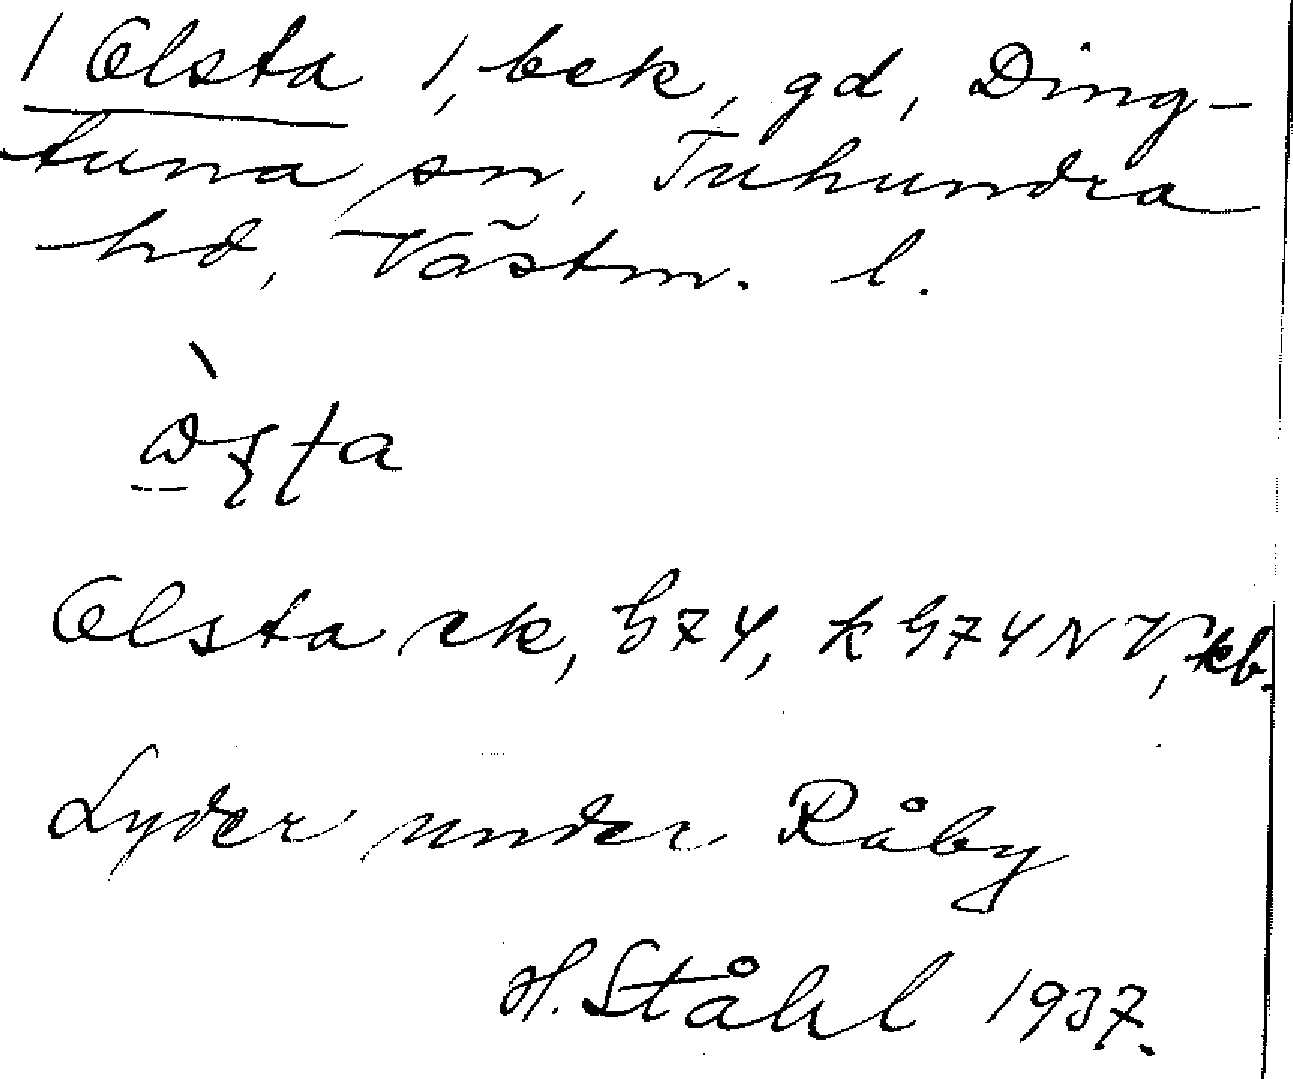 / Olsta /, bek, gd, Ding-
tuna sn, Tuhundra
hd, Västm. l.
Olsta ek, G74, k G74NV, kb.
Lyder under Råby
H. Ståhl 1937.